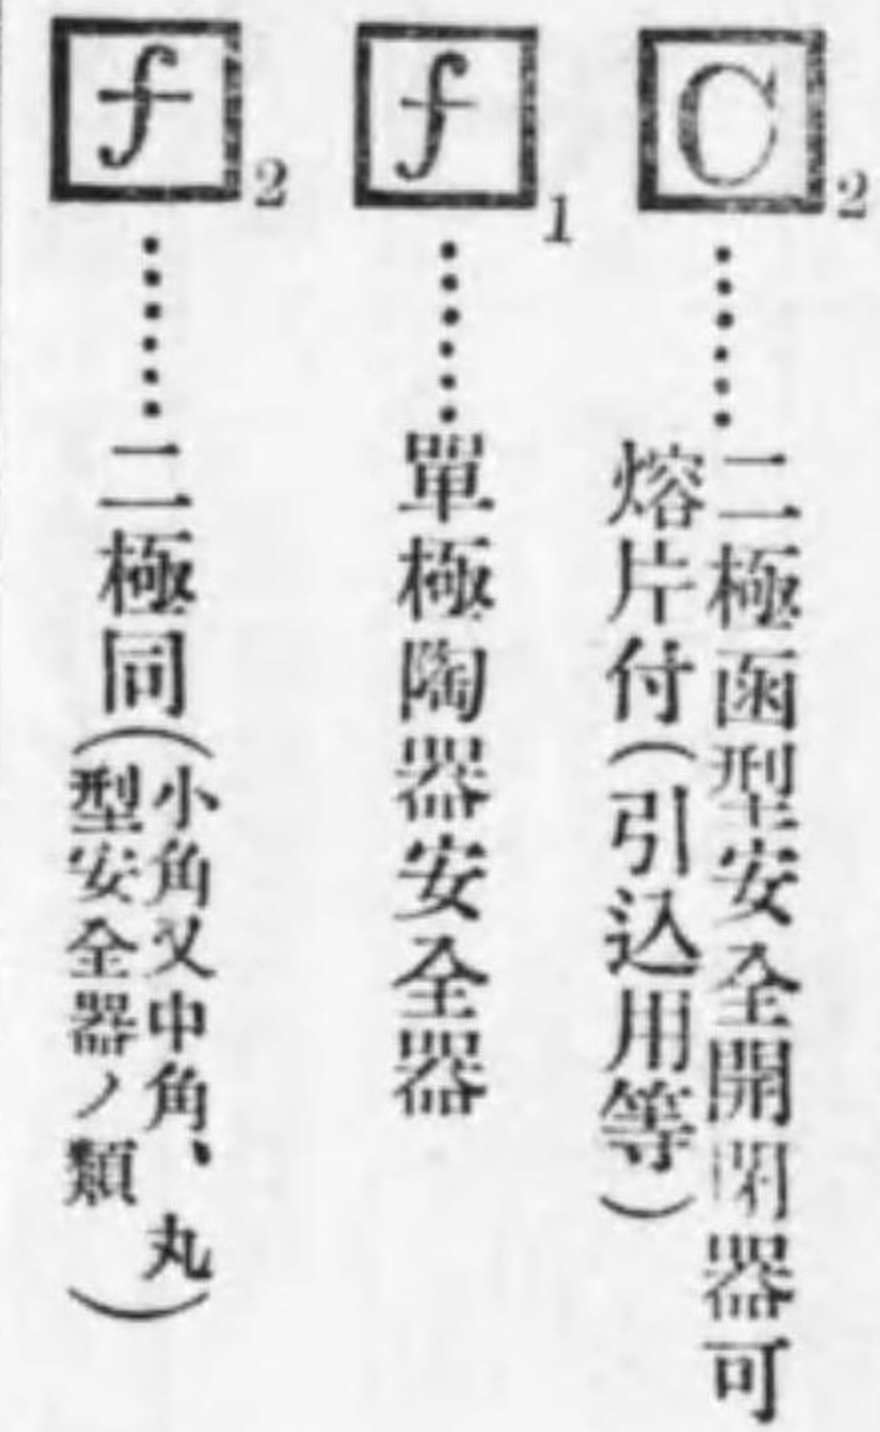 C 2……二極函型安全開閉器可
熔片付(引込用等)
f 1……單極陶器安全器
f 2……二極同(小角又中角、丸
型安全器ノ類)